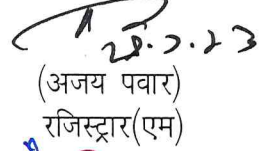 28.2.23
(अजय पवार)
रजिस्ट्रार(एम)